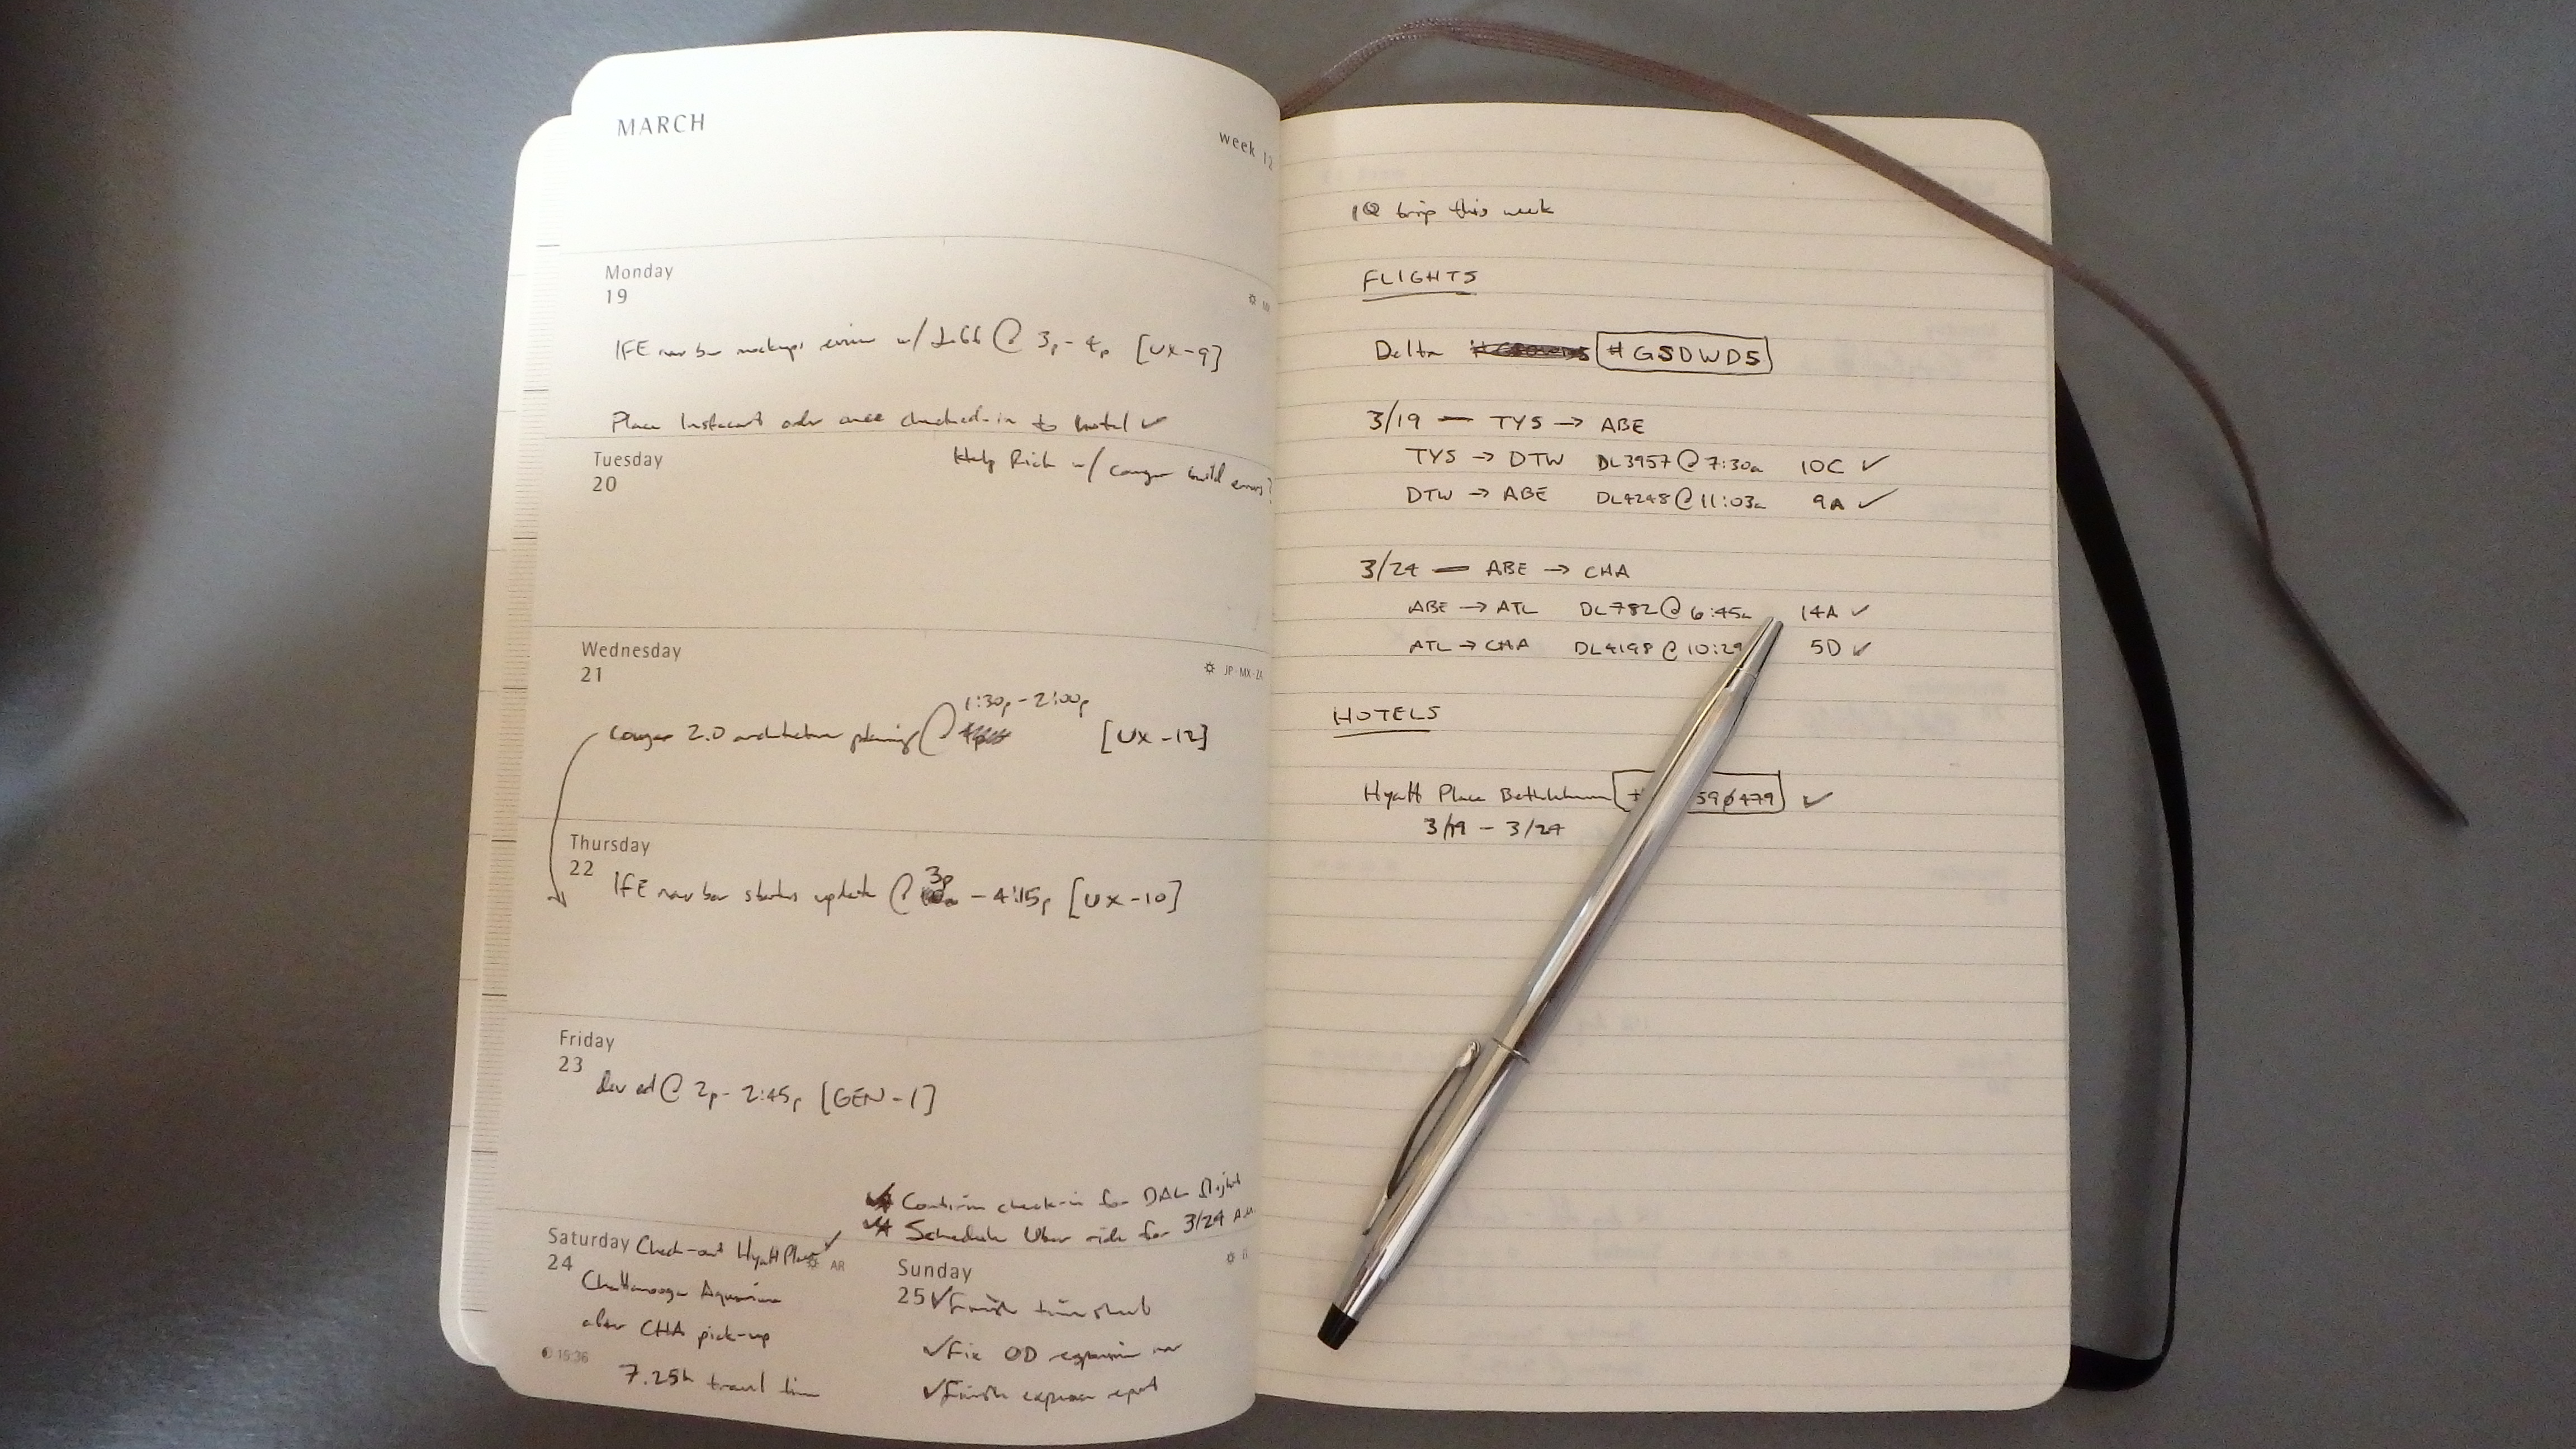 MARCH
week 12
Monday
19
IFE nav bar mockups review w/ @ 3p - 4p [UX-9]
Place Instacart order once checked-in to hotel ✓
Tuesday
20
Help Rich w/ cougar build errors?
Wednesday
21
JP · MX · ZA
1:30p - 2:00p
Cougar 2.0 architecture planning @ [UX-12]
Thursday
22
3p
IFE nav bar status update @ - 4:15p [UX-10]
Friday
23
dev ed @ 2p - 2:45p [GEN-1]
Confirm check-in for DAL flight
Schedule Uber ride for 3/24 AM
Saturday
24
Check-out Hyatt Place ✓
AR
Chattanooga Aquarium
after CHA pick-up
7.25h travel time
15:36
Sunday
25
✓ Finish timesheet
✓ Fix OD expansion
✓ Finish expense report
1Q trip this week
FLIGHTS
Delta #GSDWDS
3/19 — TYS → ABE
TYS → DTW DL3957 @ 7:30a 10C ✓
DTW → ABE DL4248 @ 11:03a 9A ✓
3/24 — ABE → CHA
ABE → ATL DL782 @ 6:45a 14A ✓
ATL → CHA DL4198 @ 10:29 5D ✓
HOTELS
Hyatt Place Bethlehem # 590479 ✓
3/19 - 3/24